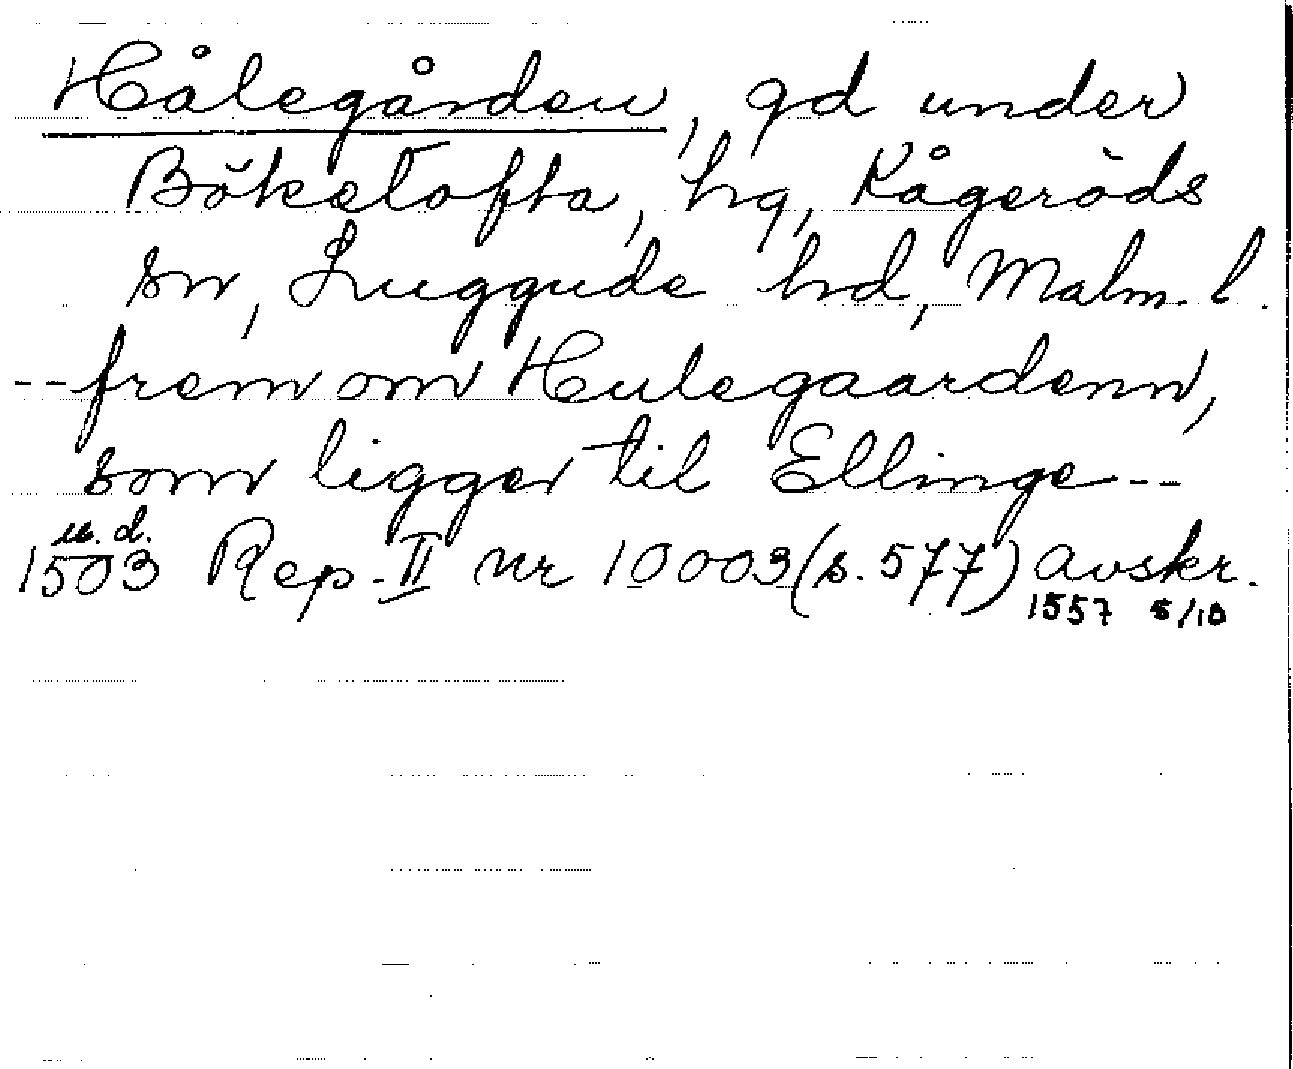 Hålegården, gd under
Böketofta, hg, Kågeröds
sn, Luggude hd, Malm. l.
-- frem om Hulegaardenn,
som ligger til Ellinge --
u. d.
1503 Rep. II nr 10003 (s. 577) avskr.
1557 5/10